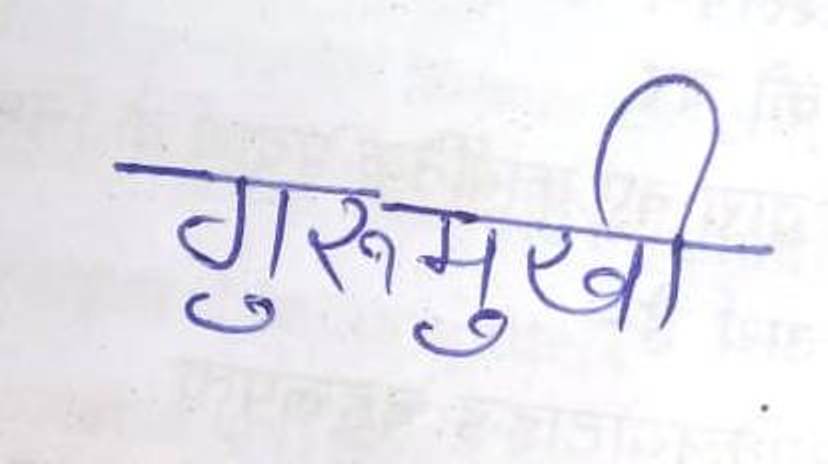 गुरूमुखी